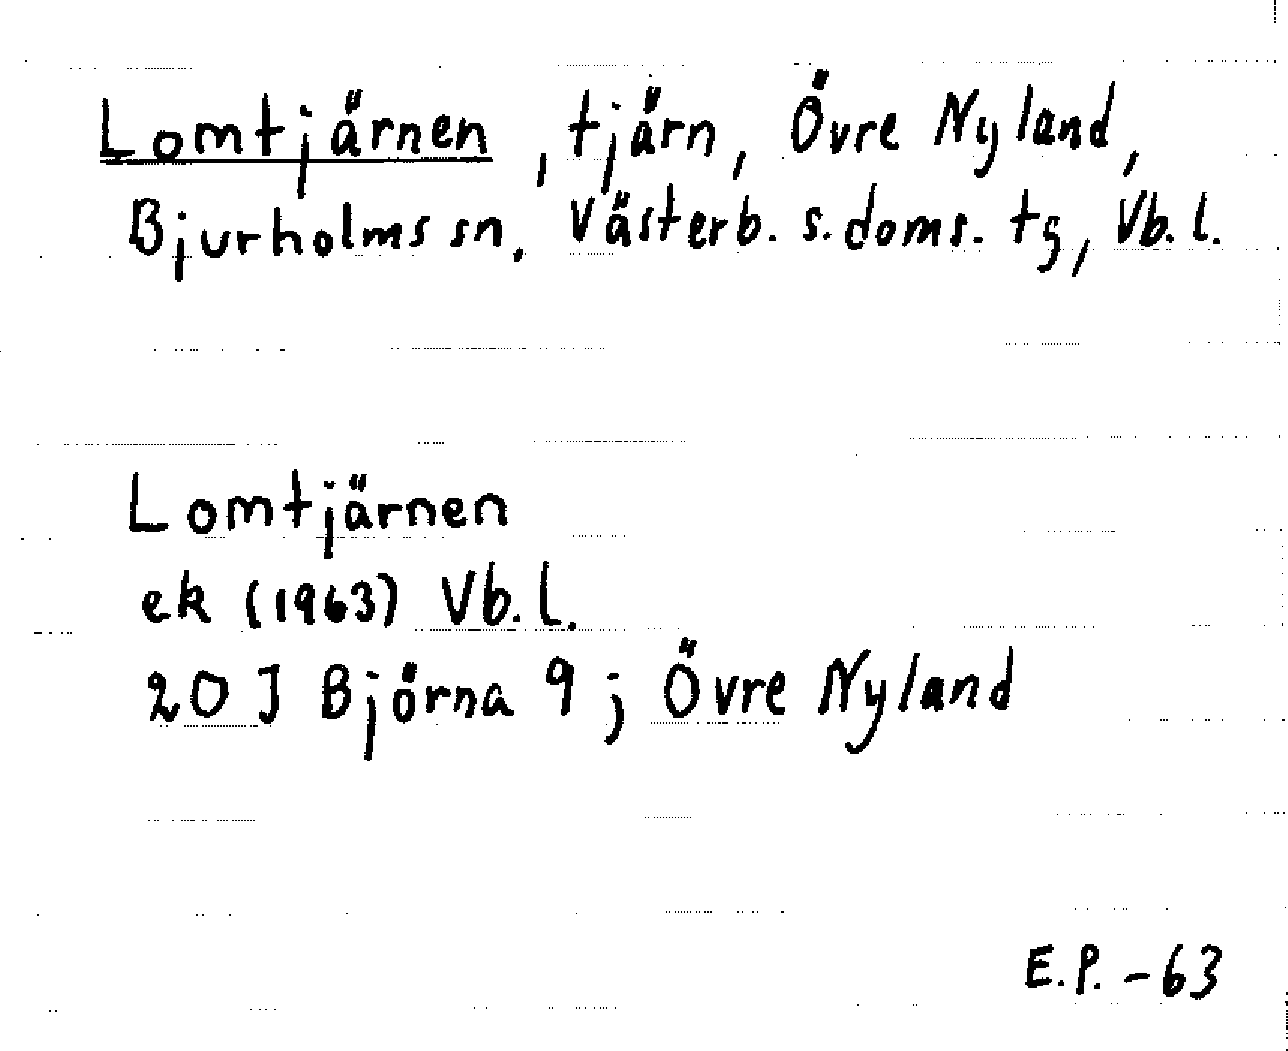 Lomtjärnen, tjärn, Övre Nyland,
Bjurholms sn, Västerb. s. doms. tg, Vb. l.
Lomtjärnen
ek (1963) Vb. l.
20 J Björna 9 j Övre Nyland
E.P. -63